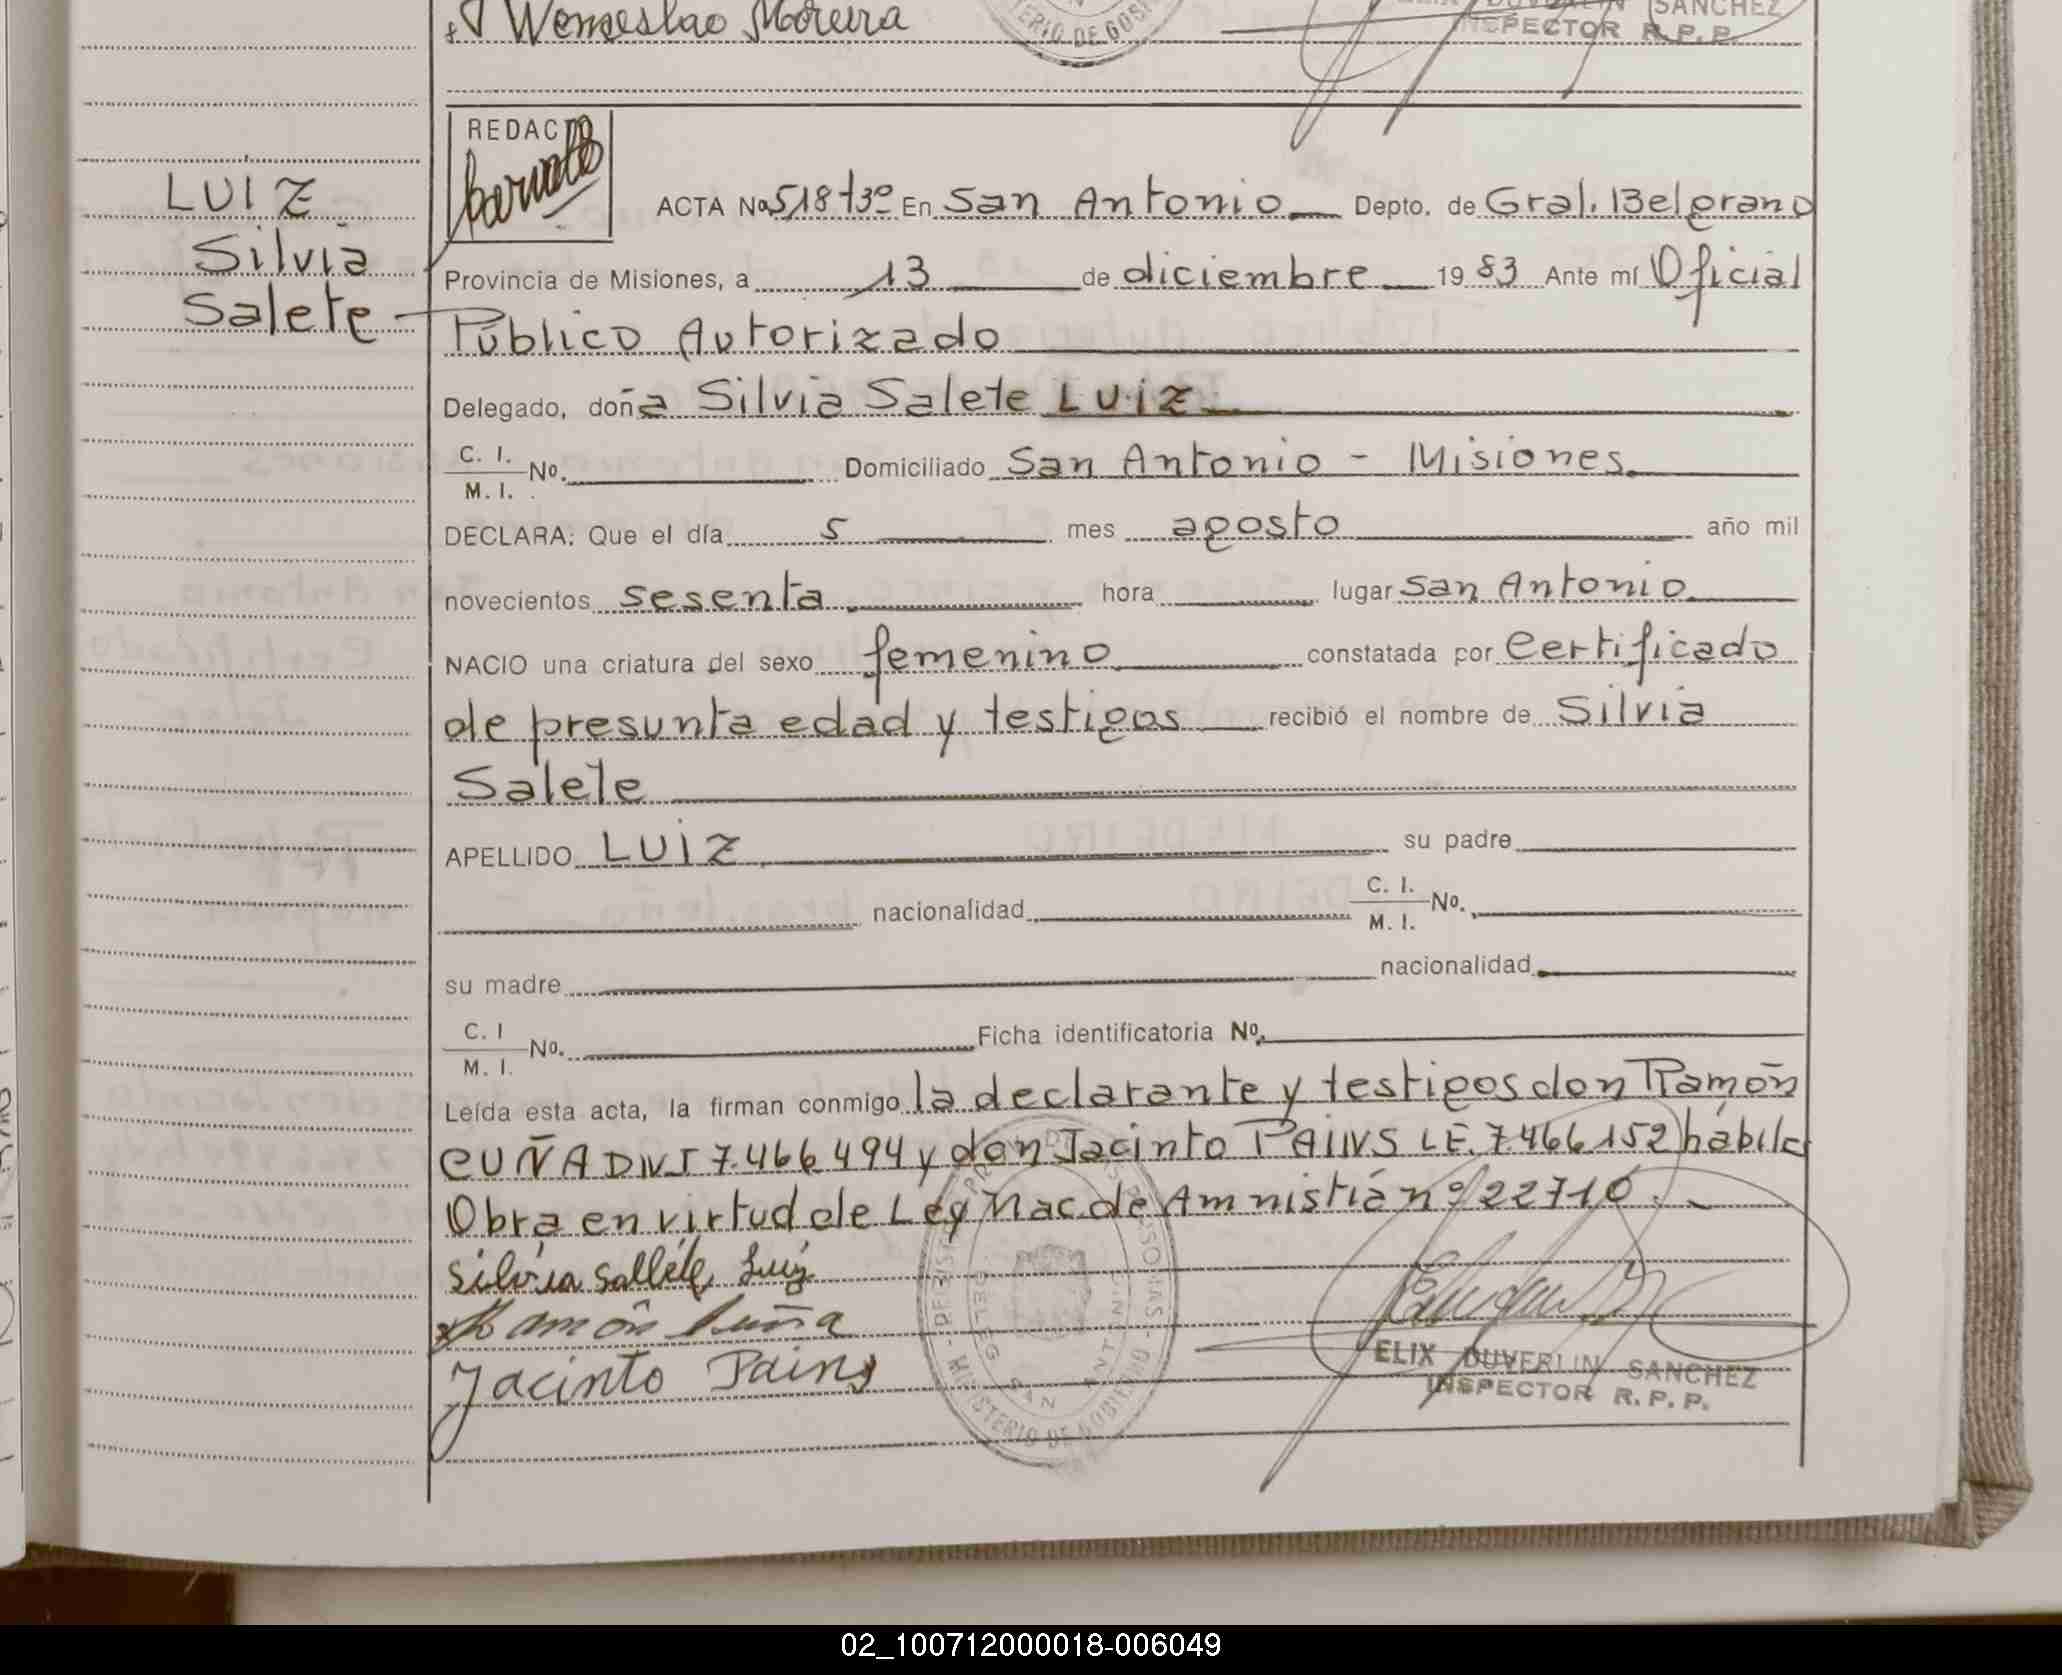 Wenseslao Moreira
MINISTERIO DE GOBI
SANCHEZ
INSPECTOR R. P. P.
REDACTO
LUIZ
Silvia
Salete
ACTA No 518 t3º En San Antonio Depto. de Gral. Belgrano
Provincia de Misiones, a 13 de diciembre 1983 Ante mí Oficial
Público Autorizado
Delegado, doña Silvia Salete LUIZ
C. I.
M. I. No. Domiciliado San Antonio - Misiones.
DECLARA: Que el día 5 mes agosto año mil
novecientos sesenta hora lugar San Antonio
NACIO una criatura del sexo femenino constatada por Certificado
de presunta edad y testigos recibió el nombre de Silvia
Salete
APELLIDO LUIZ su padre
nacionalidad C. I.
M. I. No.
su madre nacionalidad
C. I
M. I. No. Ficha identificatoria No.
Leída esta acta, la firman conmigo la declarante y testigos don Ramón
CUÑA DNI 7.466.494 y don Jacinto PAINS LE. 7.466.152 hábiles
Obra en virtud de Ley Nac. de Amnistiá nº 22710.
Silvia Salléte Luiz
Ramón Cuña
Jacinto Pains
ELIX DUVERLIN SANCHEZ
INSPECTOR R. P. P.
02_100712000018-006049